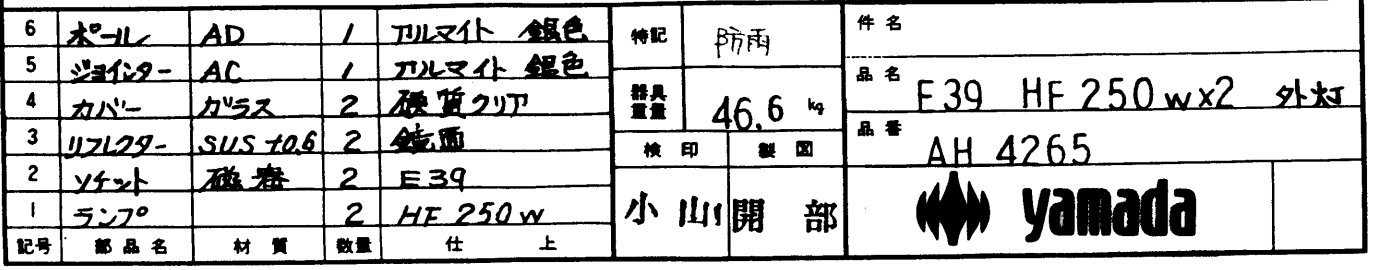 6 ポール AD 1 アルマイト 銀色
5 ジョインター AC 1 アルマイト 銀色
4 カバー ガラス 2 硬質クリア
3 リフレクター SUS t0.6 2 鏡面
2 ソケット 磁器 2 E39
1 ランプ 2 HF 250W
記号 部品名 材質 数量 仕上
特記 防雨
器具重量 46.6 kg
検印 製図
小山 開部
件名
品名 E39 HF 250W×2 外灯
品番 AH 4265
yamada